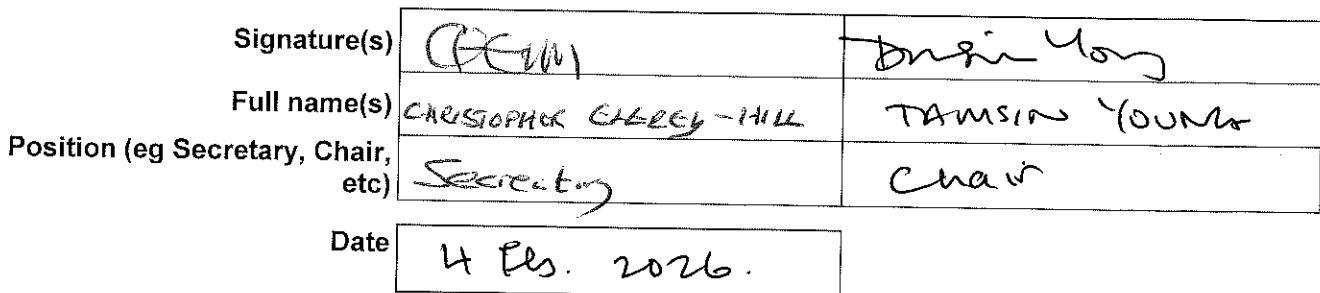 Signature(s) Tamsin Young
Full name(s) CHRISTOPHER ELLEREY-HILL TAMSIN YOUNG
Position (eg Secretary, Chair,
etc) Secretary Chair
Date 4 Feb. 2026.